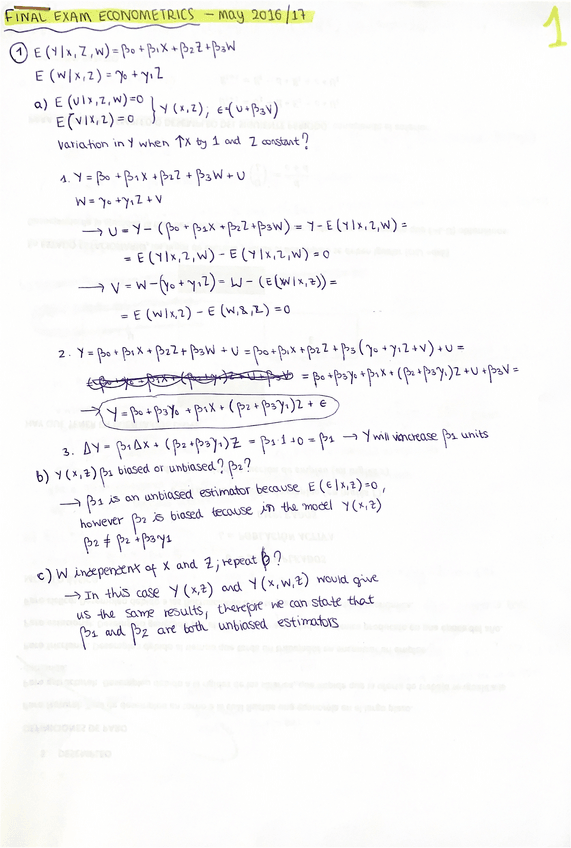 FINAL EXAM ECONOMETRICS – MAY 2016/17
1
① E(Y|X,Z,W)=β0+β1X+β2Z+β3W
E(W|X,Z)=γ0+γ1Z
a) E(U|X,Z,W)=0
E(V|X,Z)=0 } Y(X,Z); E(U+β3V)
Variation in Y when ↑X by 1 and Z constant?
1. Y=β0+β1X+β2Z+β3W+U
W=γ0+γ1Z+V
→ U=Y-(β0+β1X+β2Z+β3W)=Y-E(Y|X,Z,W)=
=E(Y|X,Z,W)-E(Y|X,Z,W)=0
→ V=W-(γ0+γ1Z)=W-(E(W|X,Z))=
=E(W|X,Z)-E(W,X,Z)=0
2. Y=β0+β1X+β2Z+β3W+U=β0+β1X+β2Z+β3(γ0+γ1Z+V)+U=
=β0+β3γ0+β1X+(β2+β3γ1)Z+U+β3V=
→ Y=β0+β3γ0+β1X+(β2+β3γ1)Z+ε
3. ΔY=β1ΔX+(β2+β3γ1)Z=β1·1+0=β1 → Y will increase β1 units
b) Y(X,Z) β1 biased or unbiased? β2?
→ β1 is an unbiased estimator because E(ε|X,Z)=0,
however β2 is biased because in the model Y(X,Z)
β2≠β2+β3γ1
c) W independent of X and Z; repeat b?
→ In this case Y(X,Z) and Y(X,W,Z) would give
us the same results, therefore we can state that
β1 and β2 are both unbiased estimators